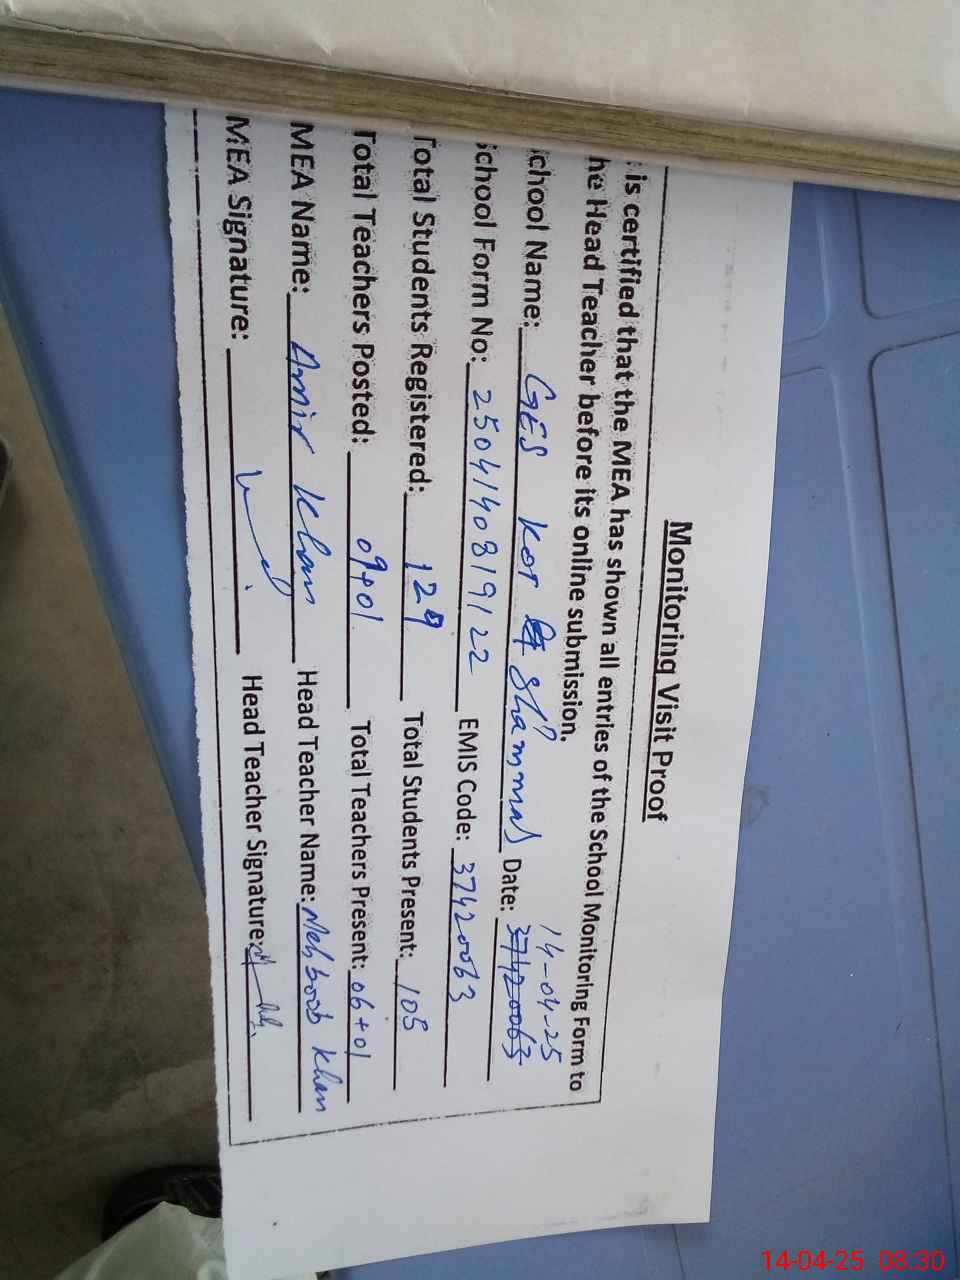 Monitoring Visit Proof
is certified that the MEA has shown all entries of the School Monitoring Form to
he Head Teacher before its online submission.
chool Name: GES Kot Shammas Date: 14-04-25
37420063
chool Form No: 2504140819122 EMIS Code: 37420063
Total Students Registered: 129 Total Students Present: 105
Total Teachers Posted: 09+01 Total Teachers Present: 06+01
MEA Name: Amir Khan Head Teacher Name: Mehboob Khan
MEA Signature: Head Teacher Signature:
14-04-25 08:30